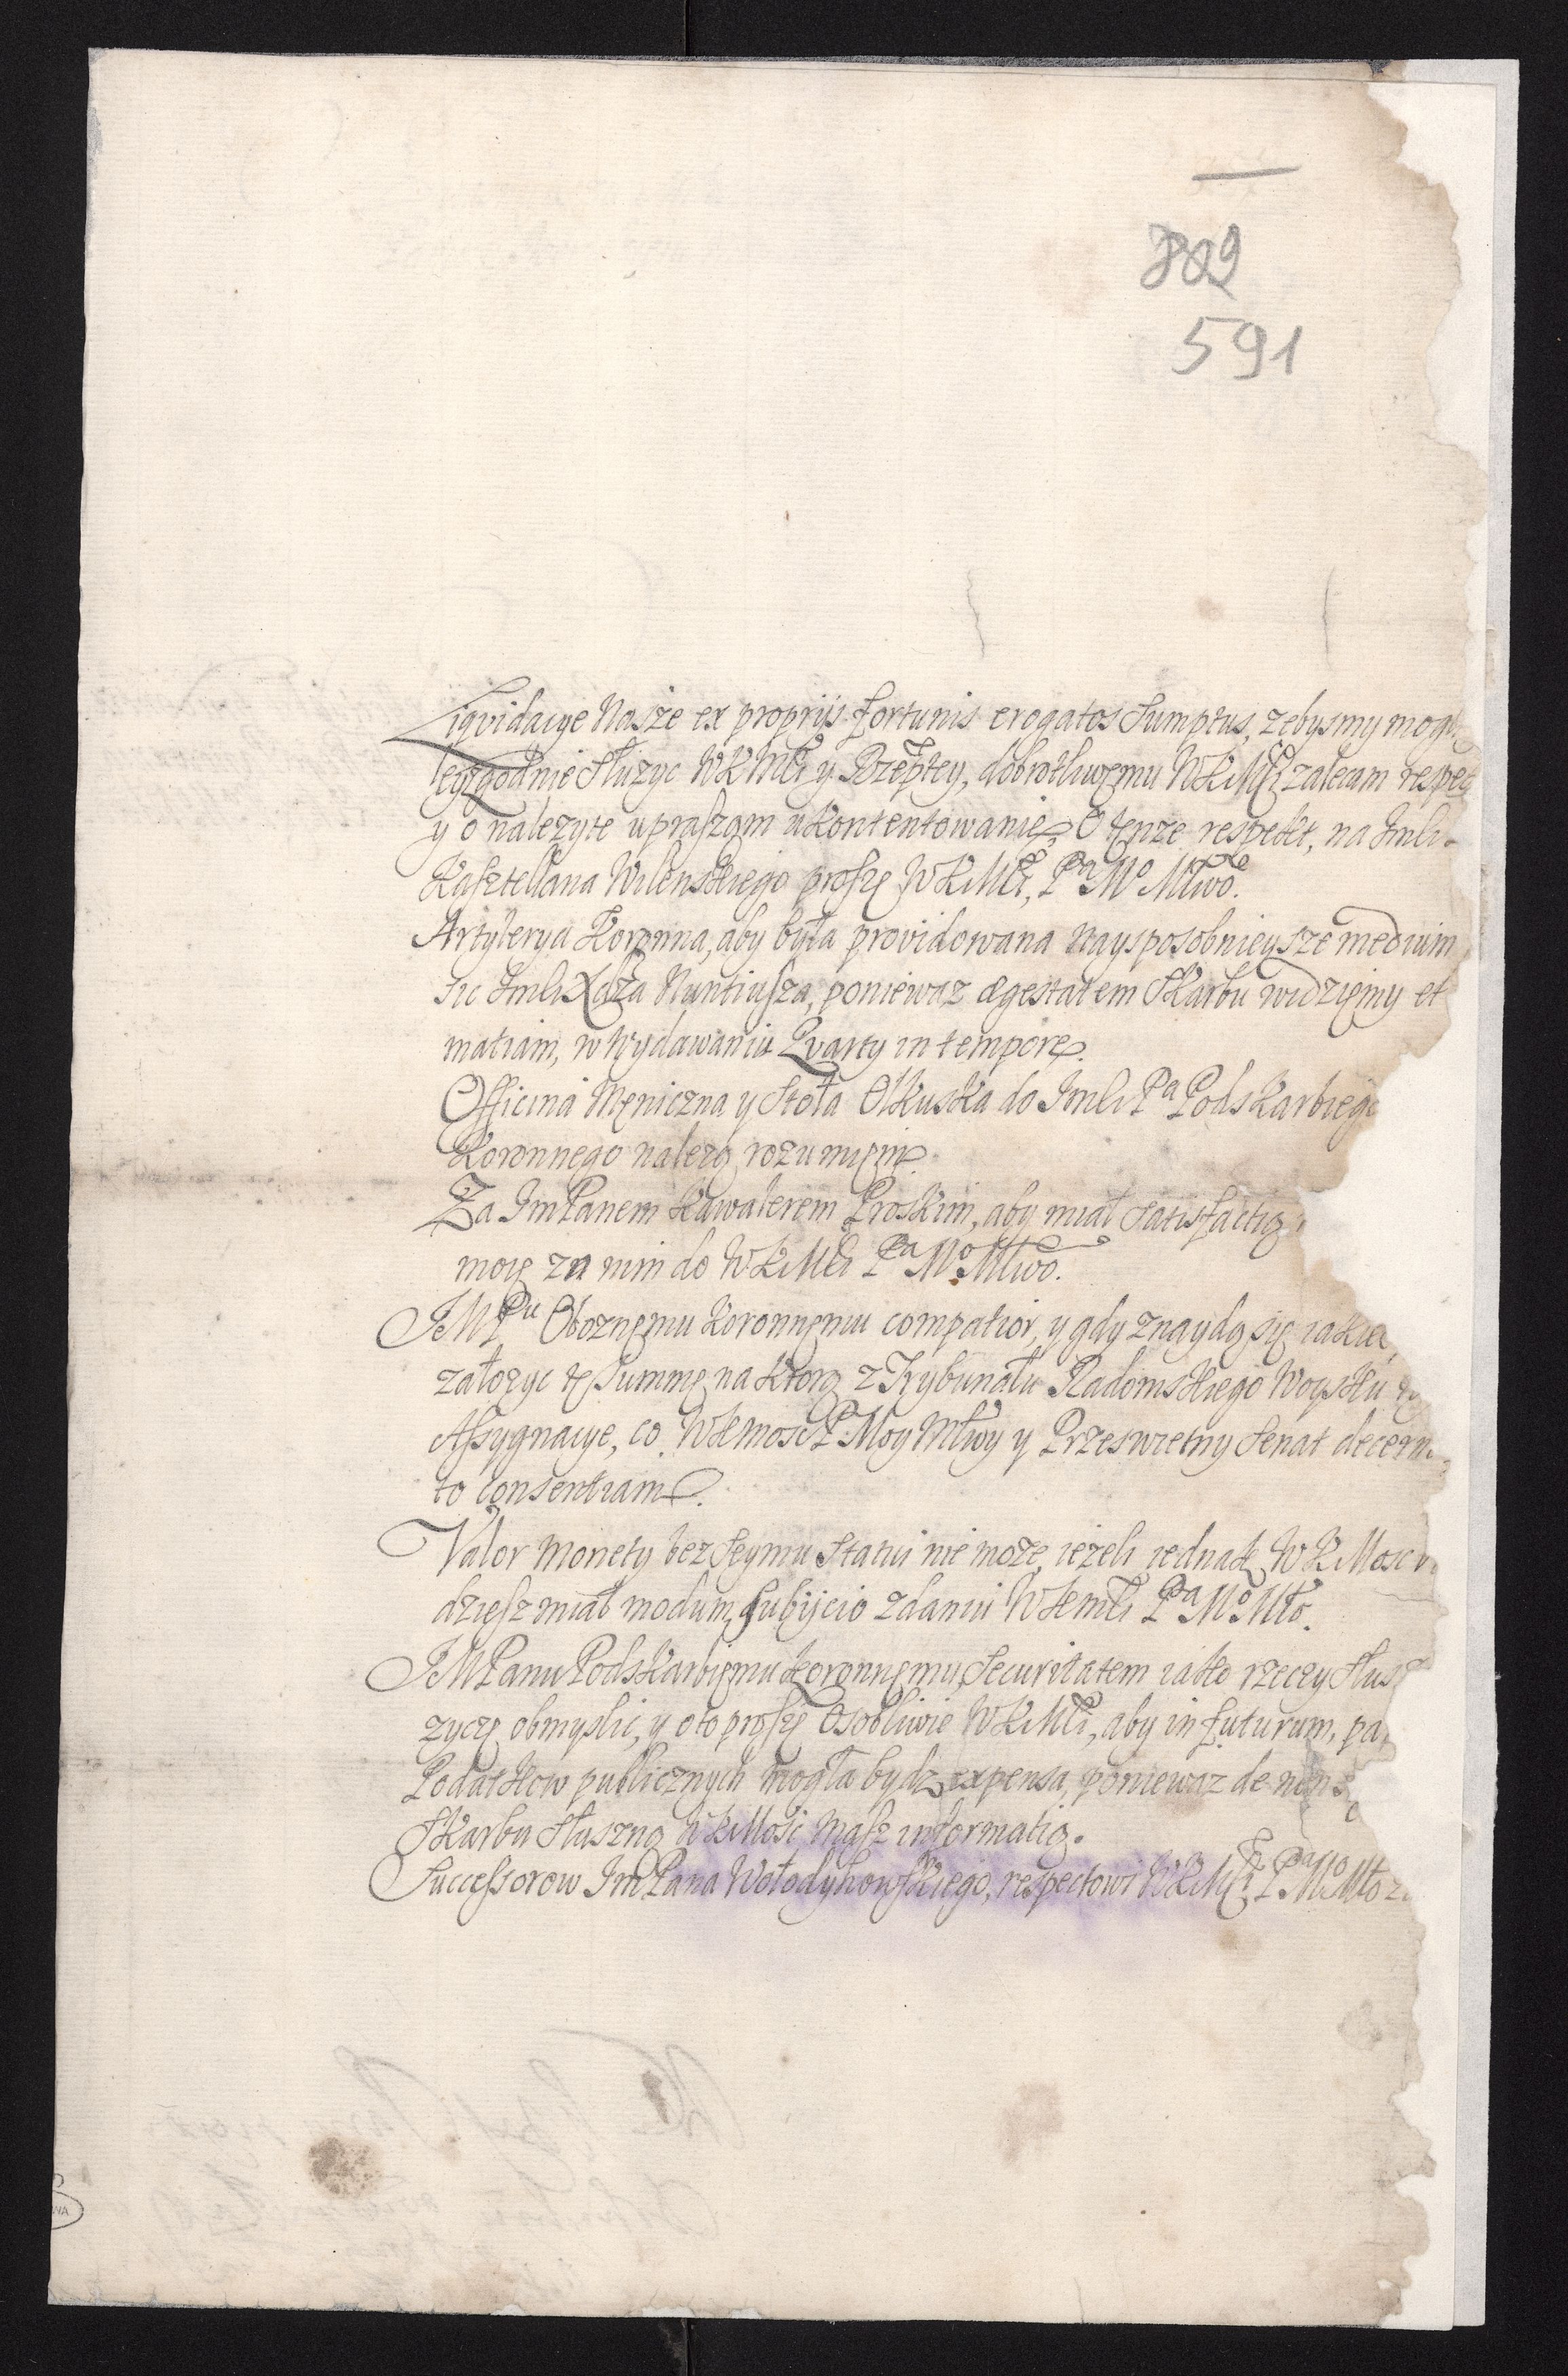 809
591
Liqvidacye Nasze ex proprijs fortunis erogatos Sumptus, zebysmy mogl
Służyc WKMći y Rzeptey, dobrotliwemu WKMći zalecam respec
y o nalezyte upraszam ukontentowanie. O tenze respekt, na Imći
Kasztellana Wilenskiego proszę WKMći, Pa Mo Młwo.
Artylerya Koronna, aby była providowana Naysposobnieysze medium
sic Imći Xdza Nuntiusza, poniewaz egestatem Skarbu widziemy et
matiam, w wydawaniu Qvarty in tempore.
Officina Męniczna y Stoła Olkuska do Imći Pa Podskarbiego
Koronnego nalezą rozumiem.
Za Im Panem Kawalerem Proskim, aby miał Satisfactią
moię za nim do WKMći Pa Mo Młwo.
JMPu Oboznemu Koronnemu compatior, y gdy znaydą się iakie
załozyc tę Summę na ktorą z Trybunału Radomskiego Woysku
Assygnacye, co WKMosc P Moy Młwy y Przeswietny Senat decern
to consentiam.
Valor Monety bez Seymu Statui nie moze, iezeli iednak WKMosc
dziesz miał modum, subijcio zdaniu WKmći Pa Mo Mło.
JMPanu Podskarbiemu Koronnemu, Securitatem iako rzeczy Słus
zyczę obmyslic, y oto proszę Osobliwie WKMći, aby in futurum,
Podatkow publicznych mogła bydz expensa, poniewaz de
Skarbu Słuszną WKMośc masz informatią.
Successorow Im Pana Wołodyiowskiego, respectowi WKMći Pa Mo Mło